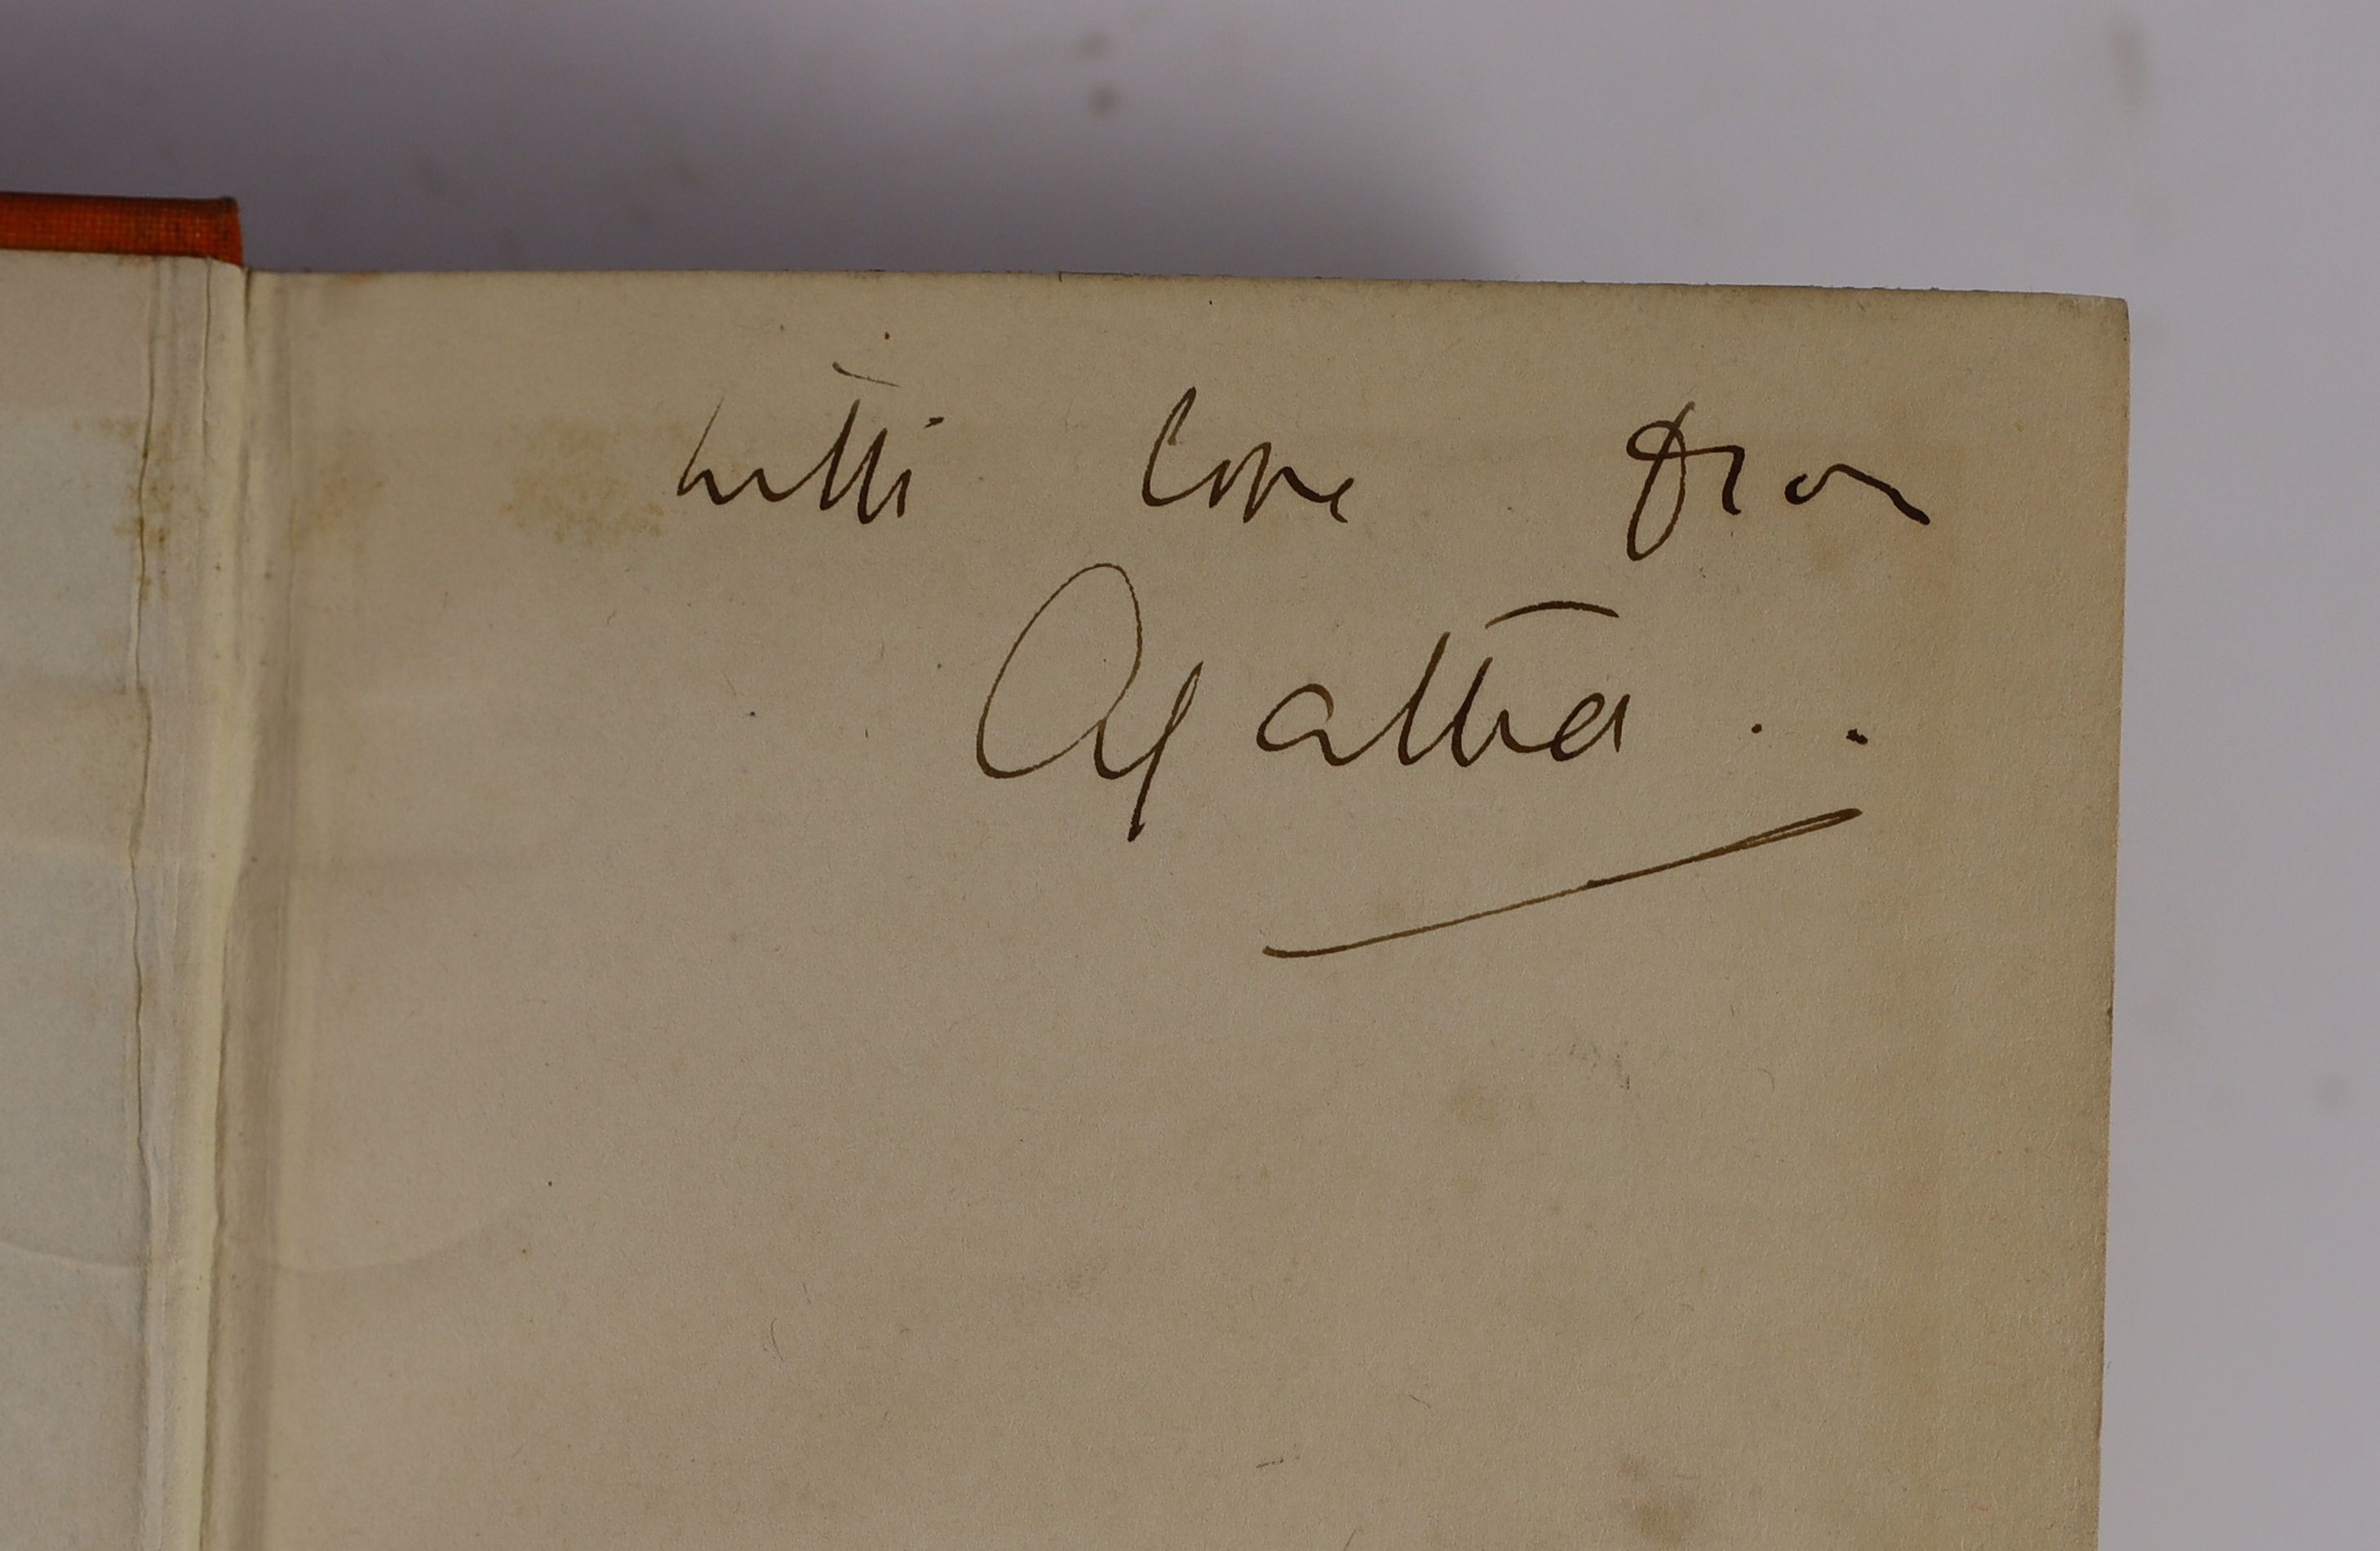 with love from
Agatha . .